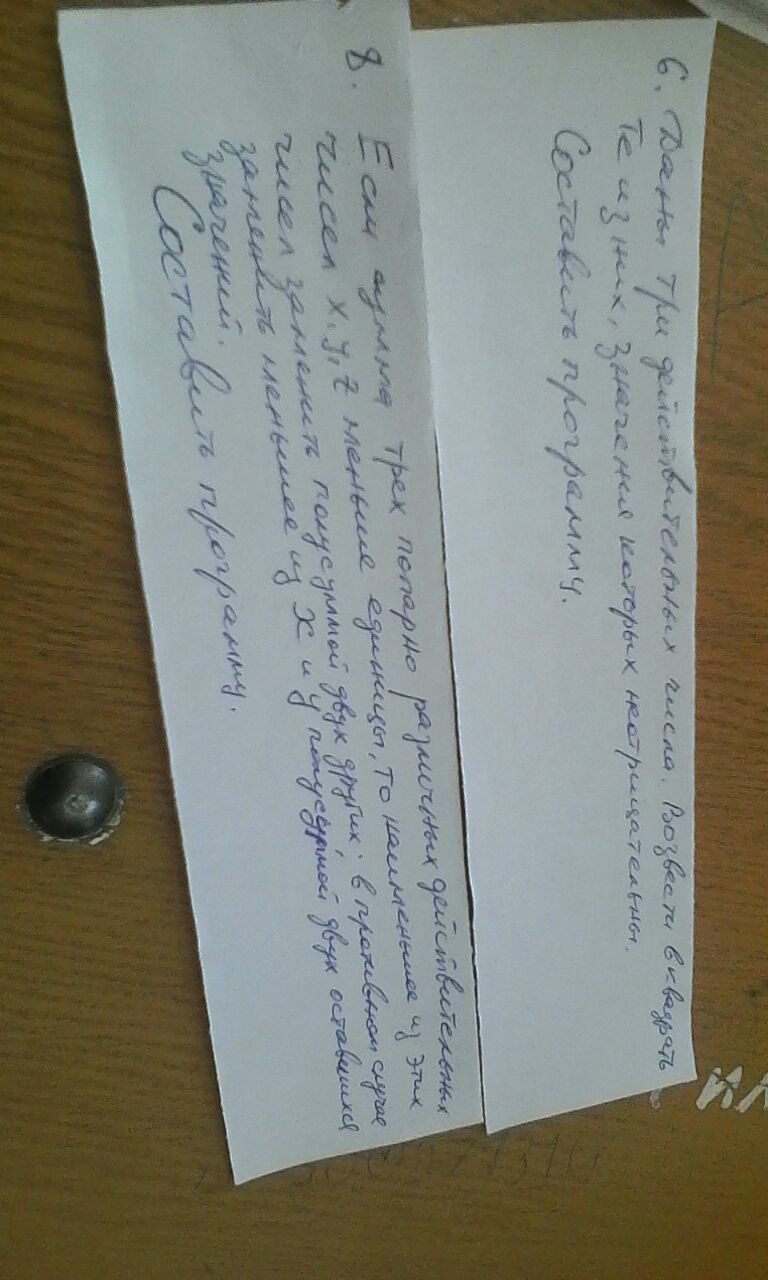 6. Даны три действительных числа. Возвести в квадрат
те из них, значения которых неотрицательны.
Составить программу.
8. Если сумма трех попарно различных действительных
чисел x, y, z меньше единицы, то наименьшее из этих
чисел заменить полусуммой двух других; в противном случае
заменить меньшее из x и y полусуммой двух оставшихся
значений.
Составить программу.